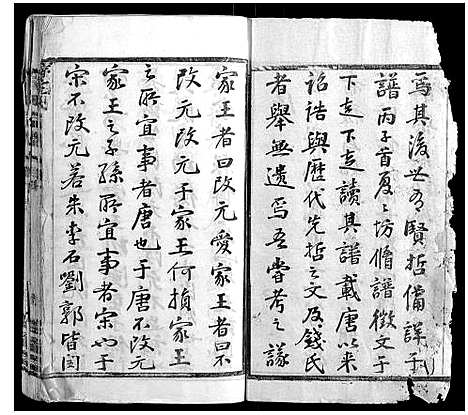 爲其後世有賢哲備詳于
譜丙子首夏之坊脩譜徵文于
下走下走讀其譜載唐以来
詔誥與歷代先哲之文及錢氏
者舉無遺焉吾嘗考之議
家王者曰改元愛家王者曰不
改元改元于家王何損家王
之所宜事者唐也于唐不改元
家王之子孫所宜事者宋也于
宋不改元若朱李石劉郭皆閏